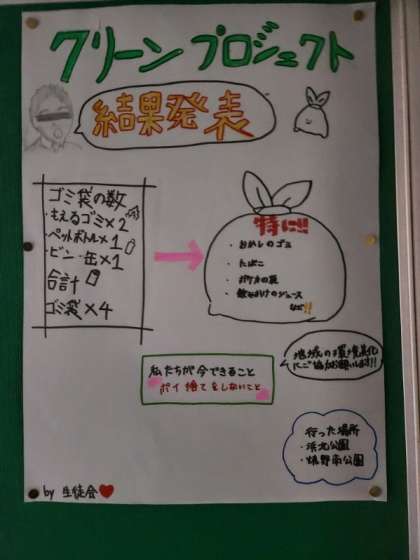 クリーン プロジェクト
結果発表
ゴミ袋の数
・もえるゴミ×2
・ペットボトル×1
・ビン・缶×1
合計
ゴミ袋×4
特に!!
・おかしのゴミ
・たばこ
・飲みかけのジュース
など!!
地域の環境美化
にご協力お願いします!!
私たちが今できること
ポイ捨てをしないこと
行った場所
・浜北公園
by 生徒会